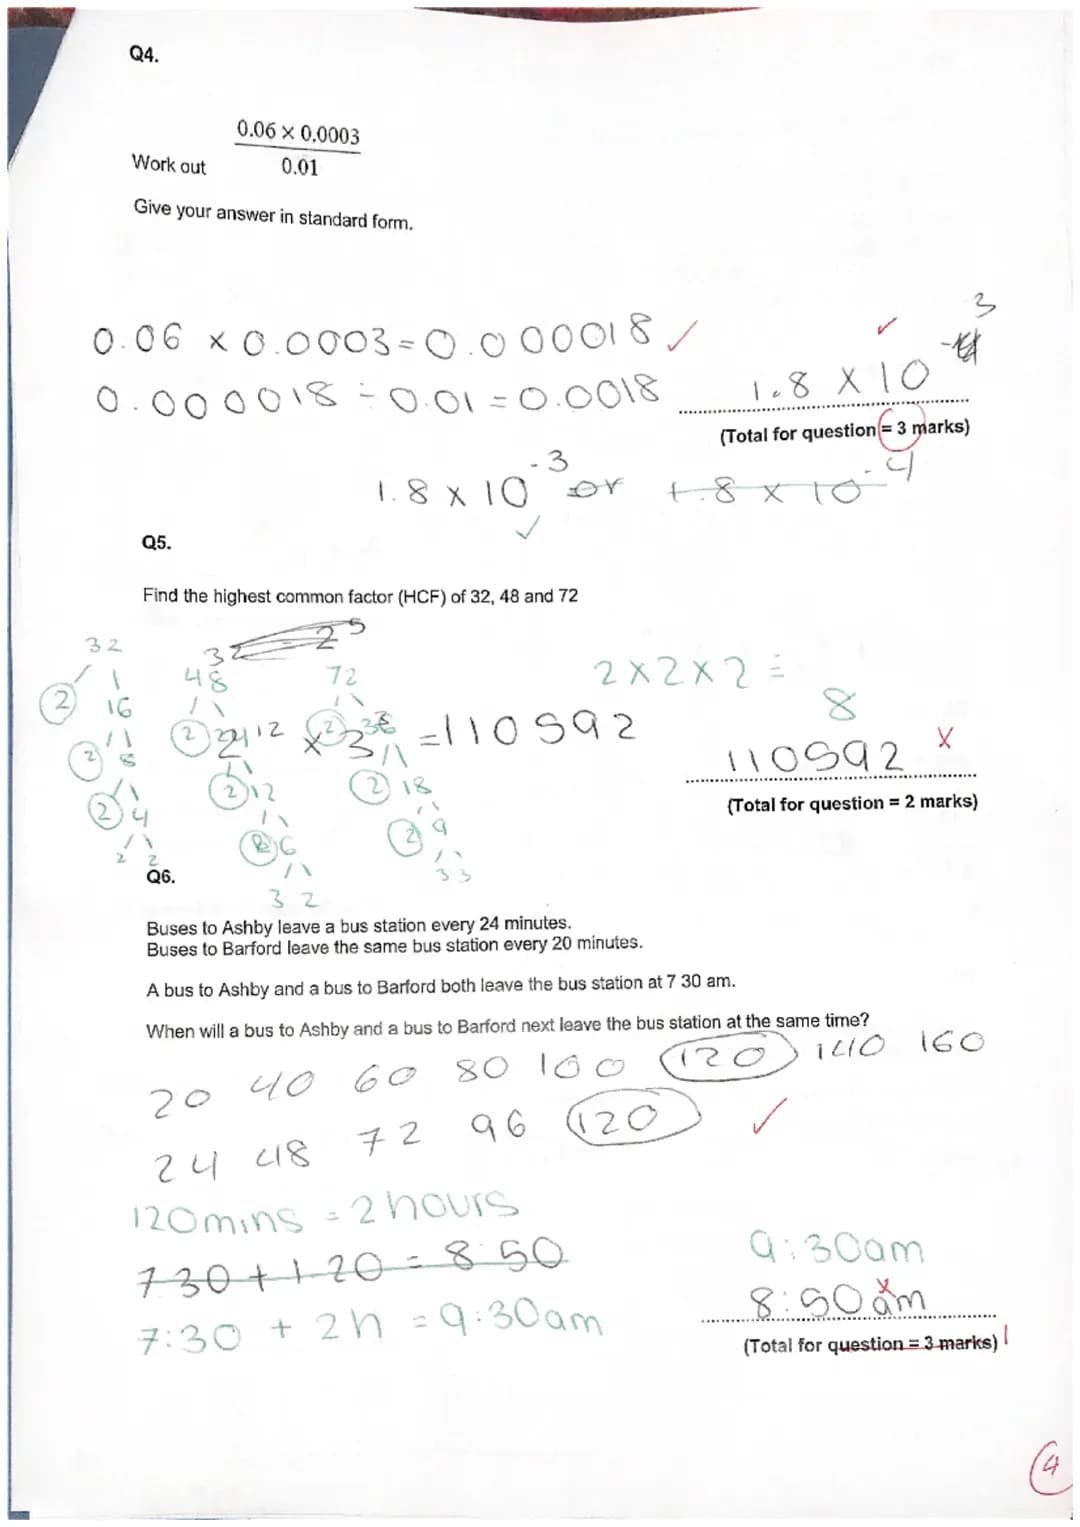 Q4.
0.06 × 0.0003
Work out
0.01
Give your answer in standard form.
3
0.06 × 0.0003 = 0.000018 ✓
✓
0.000018 ÷ 0.01 = 0.0018
1.8 × 10⁻
(Total for question = 3 marks)
1.8 × 10⁻³ or 1.8 × 10⁻⁴
✓
Q5.
Find the highest common factor (HCF) of 32, 48 and 72
32 = 2⁵
32 48 72
2 × 2 × 2 =
8
2 16
2 24 12 × 2 36 = 110592
110592 ✗
2 8
2 12
2 18
(Total for question = 2 marks)
2 4
2 6
2 9
2 2
3 2
3 3
Q6.
Buses to Ashby leave a bus station every 24 minutes.
Buses to Barford leave the same bus station every 20 minutes.
A bus to Ashby and a bus to Barford both leave the bus station at 7 30 am.
When will a bus to Ashby and a bus to Barford next leave the bus station at the same time?
20 40 60 80 100 120 140 160
24 48 72 96 120 ✓
120mins = 2 hours
730 + 1 20 = 8 50
9:30am
8:50am ✗
7:30 + 2h = 9:30am
(Total for question = 3 marks) 1
4